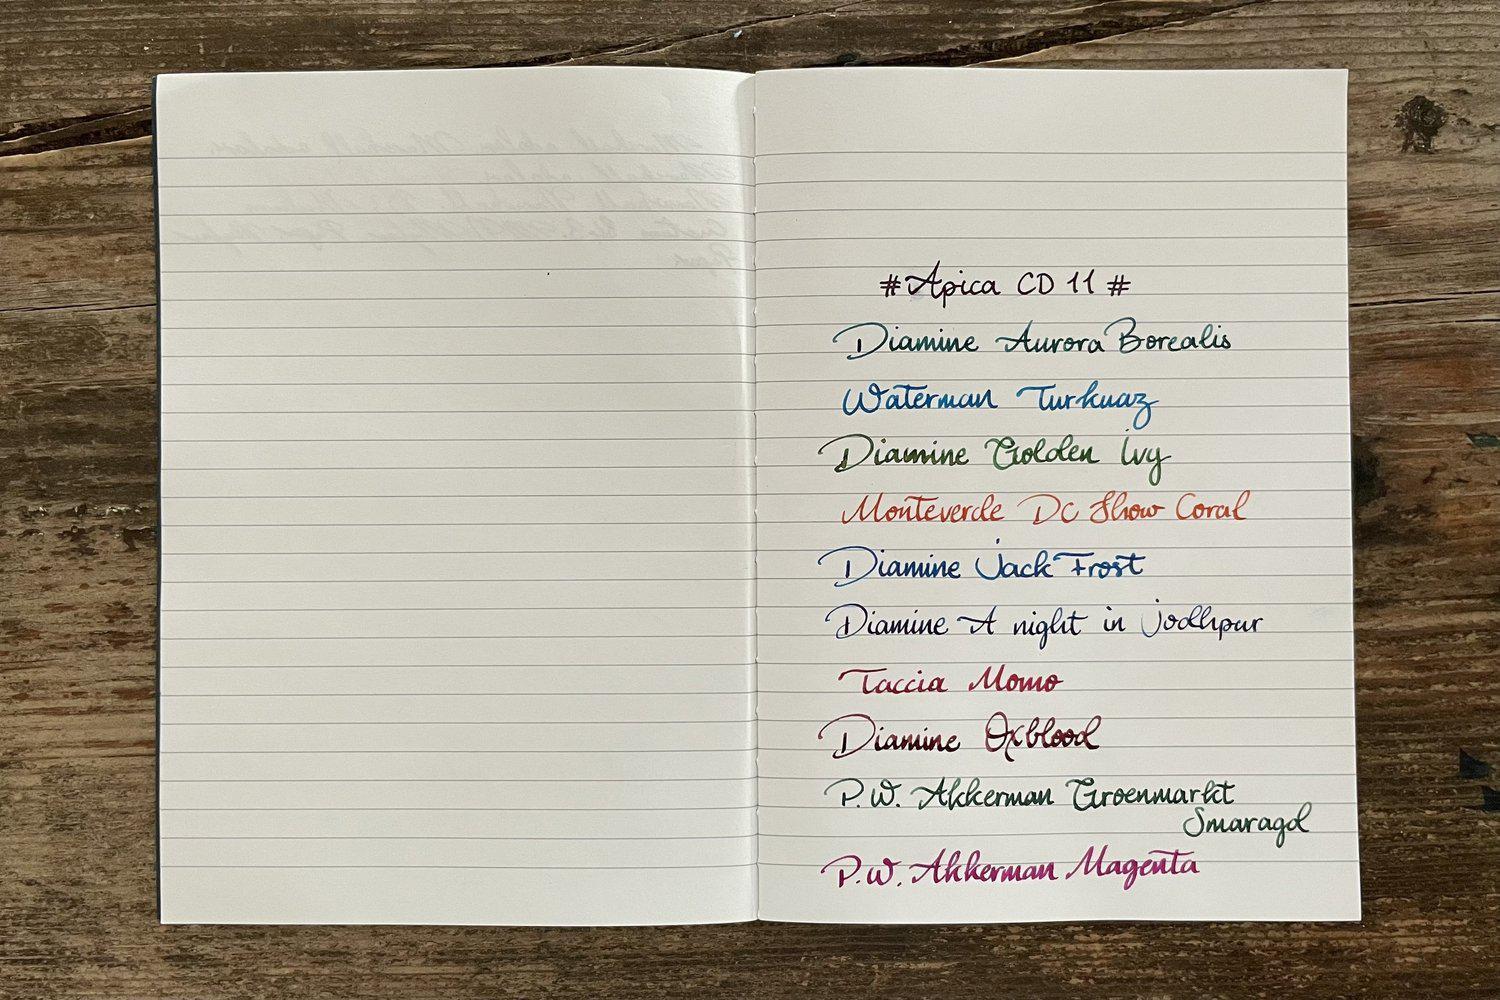 # Apica CD 11 #
Diamine Aurora Borealis
Waterman Turkuaz
Diamine Golden ivy
Monteverde DC Show Coral
Diamine Jack Frost
Diamine A night in jodhpur
Taccia Momo
Diamine Oxblood
P.W. Akkerman Groenmarkt
Smaragd
P.W. Akkerman Magenta